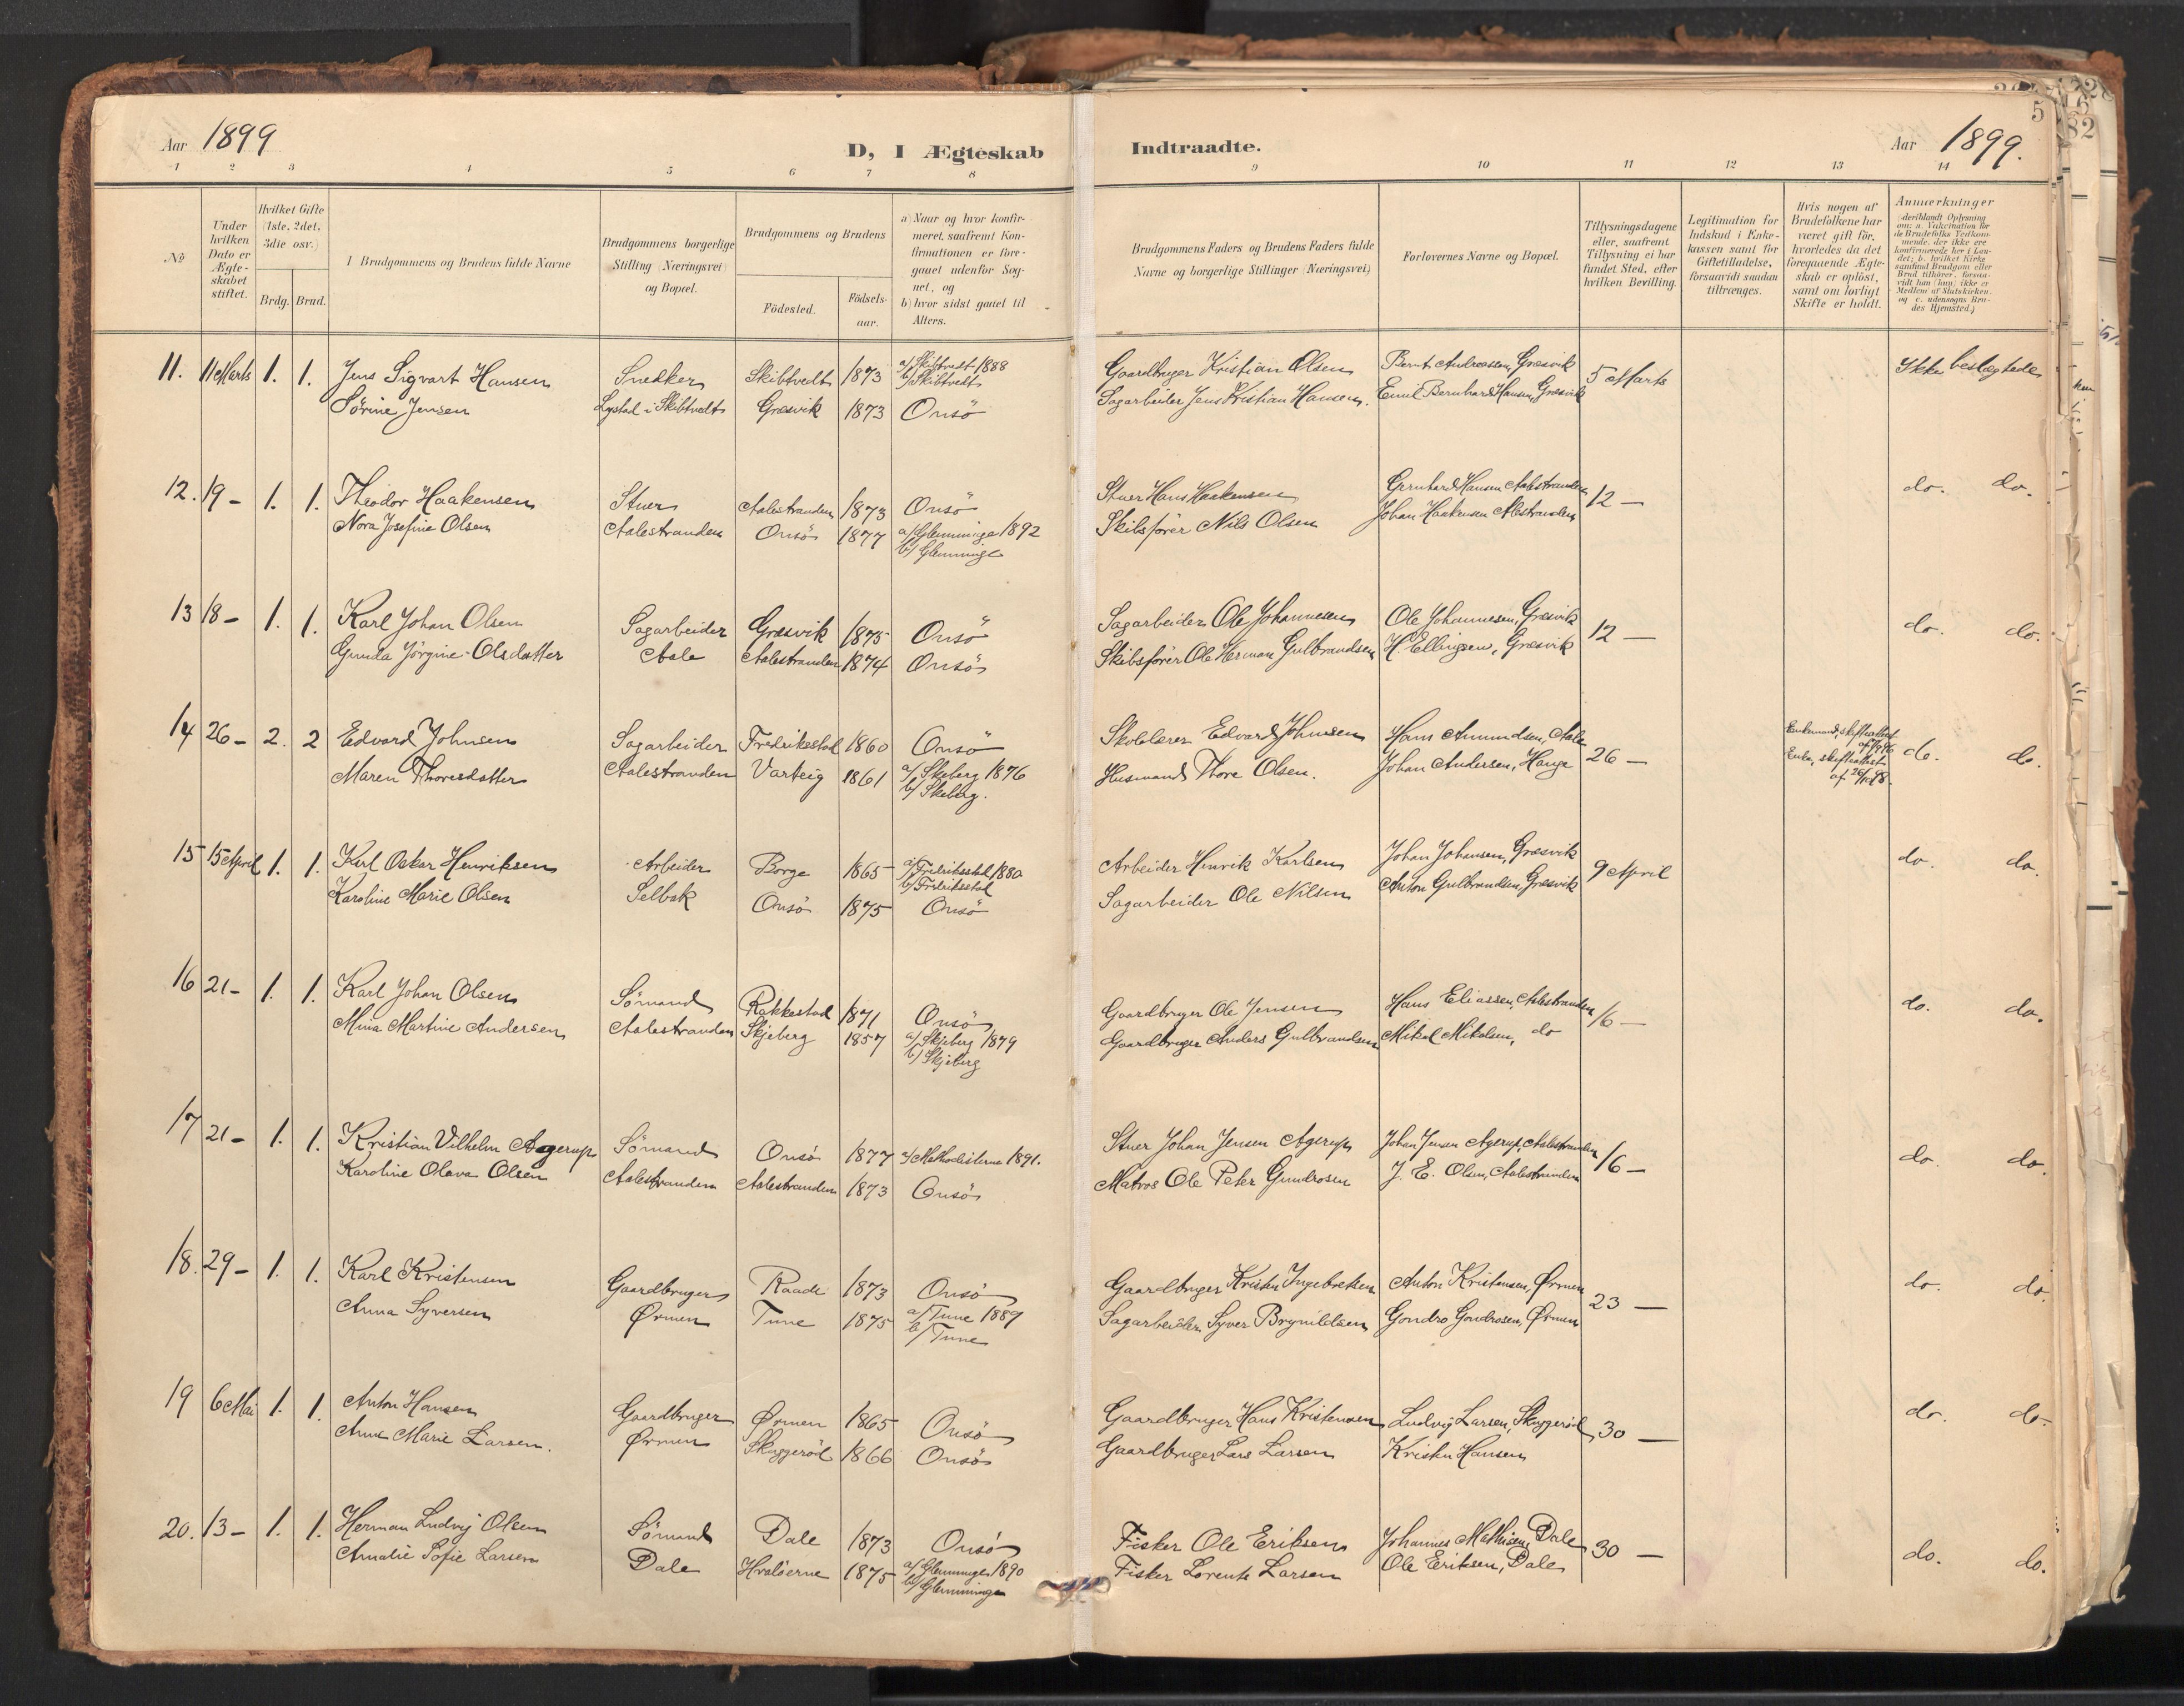 Aar 1899
D, I Ægteskab Indtraadte.
Aar 1899.
5
1 2 3 4 5 6 7 8 9 10 11 12 13 14
No
Under hvilken Dato er Ægteskabet stiftet.
Hvilket Gifte (1ste, 2det, 3die osv.)
Brdg. Brud.
Brudgommens og Brudens fulde Navne
Brudgommens borgerlige Stilling (Næringsvei) og Bopæl.
Brudgommens og Brudens
Födested.
Födselsaar.
a) Naar og hvor konfirmeret, saafremt Konfirmationen er foregaaet udenfor Sognet, og
b) hvor sidst gaaet til Alters.
Brudgommens Faders og Brudens Faders fulde Navne og borgerlige Stillinger (Næringsvei)
Forlovernes Navne og Bopæl.
Tillysningsdagene eller, saafremt Tillysning ei har fundet Sted, efter hvilken Bevilling.
Legitimation for Indskud i Enkekassen samt for Giftetilladelse, forsaavidt saadan tiltrænges.
Hvis nogen af Brudefolkene har været gift för, hvorledes da det foregaaende Ægteskab er oplöst, samt om lovligt Skifte er holdt.
Anmærkninger (deriblandt Oplysning om: a. Vakcination for de Brudefolks Vedkommende, der ikke ere konfirmerede her i Landet; b. hvilket Kirkesamfund Brudgom eller Brud tilhörer, forsaavidt han (hun) ikke er Medlem af Statskirken, og c. udensogns Brudes Hjemsted.)
11. 11 Marts 1. 1. Jens Sigvart Hansen Snedker Skibtvedt 1873 a/ Skibtvedt 1888 b/ Skibtvedt Gaardbruger Kristian Olsen Bernt Andreasen, Græsvik 5 Marts Ikke beslægtede
Sörine Jensen Lystad i Skibtvedt Græsvik 1873 Onsö Sagarbeider Jens Kristian Hansen. Emil Bernhard Hansen, Græsvik
12. 19 - 1. 1. Theodor Haakensen Stuer Aalestranden 1873 Onsö Stuer Hans Haakensen Hansen Aalestranden 12 — do. do.
Nora Josefine Olsen Aalestranden Onsö 1877 a/ Glemminge 1892 b/ Glemminge Skibsförer Nils Olsen Johan Haakensen Alestranden
13 18 - 1. 1. Karl Johan Olsen Sagarbeider Græsvik 1875 Onsö Sagarbeider Ole Johannesen Ole Johannesen, Græsvik 12 — do. do.
Gunda Jörgine Olsdatter Aale Aalestranden 1874 Onsö Skibsförer Ole Herman Gulbrandsen H Ellingsen, Græsvik
14 26 - 2. 2 Edvard Johnsen Sagarbeider Fredriksstad 1860 Onsö Skolelærer Edvard Johnsen Hans Amundsen, Aale 26 — Enkemand, skifteattest af do. do.
Maren Thoresdatter Aalestranden Varteig 1861 a/ Skeberg 1876 b/ Skeberg. Husmand Thore Olsen. Johan Andersen, Hauge Enke, skifteattest af
15 15 April 1. 1. Karl Oskar Henriksen Arbeider Borge 1865 a/ Fredriksstad 1880 b/ Fredriksstad Arbeider Henrik Karlsen Johan Johansen, Græsvik 9 April do. do.
Karoline Marie Olsen Selbak Onsö 1875 Onsö Sagarbeider Ole Nilsen Anton Gulbrandsen, Græsvik
16 21 - 1. 1. Karl Johan Olsen Sömand Rakkestad 1871 Onsö Gaardbruger Ole Jensen Hans Eliassen, Aalestranden 16 — do. do.
Mina Martine Andersen Aalestranden Skjeberg 1857 a/ Skjeberg 1879 b/ Skjeberg Gaardbruger Anders Gulbrandsen Mikal Mikalsen, do
17 21 - 1. 1. Kristian Vilhelm Agerup Sömand Onsö 1877 a/ Methodisterne 1891. Stuer Johan Jensen Agerup Johan Jensen Agerup, Aalestranden 16 — do. do.
Karoline Olava Olsen Aalestranden Aalestranden 1873 Onsö Matros Ole Peter Gundrosen J. E. Olsen, Aalestranden
18. 29 - 1. 1. Karl Kristensen Gaardbruger Raade 1873 Onsö Gaardbruger Kristen Ingebretsen Anton Kristensen, Ørmen 23 — do. do.
Anna Syversen Ørmen Tune 1875 a/ Tune 1889 b/ Tune Sagarbeider Syver Brynildsen Gondro Gondrosen, Ørmen
19 6 Mai 1. 1. Anton Hansen Gaardbruger Ørmen 1865 Onsö Gaardbruger Hans Kristensen Ludvig Larsen, Skuggeröd 30 — do. do.
Anne Marie Larsen. Ørmen Skuggeröd 1866 Onsö Gaardbruger Lars Larsen Kristen Hansen
20. 13 - 1. 1. Herman Ludvig Olsen Sömand Dale 1873 Onsö Fisker Ole Eriksen Johannes Mathisen, Dale 30 — do. do.
Amalie Sofie Larsen Dale Hvaløerne 1875 a/ Glemminge 1890 b/ Glemminge Fisker Lorents Larsen Ole Eriksen, Dale